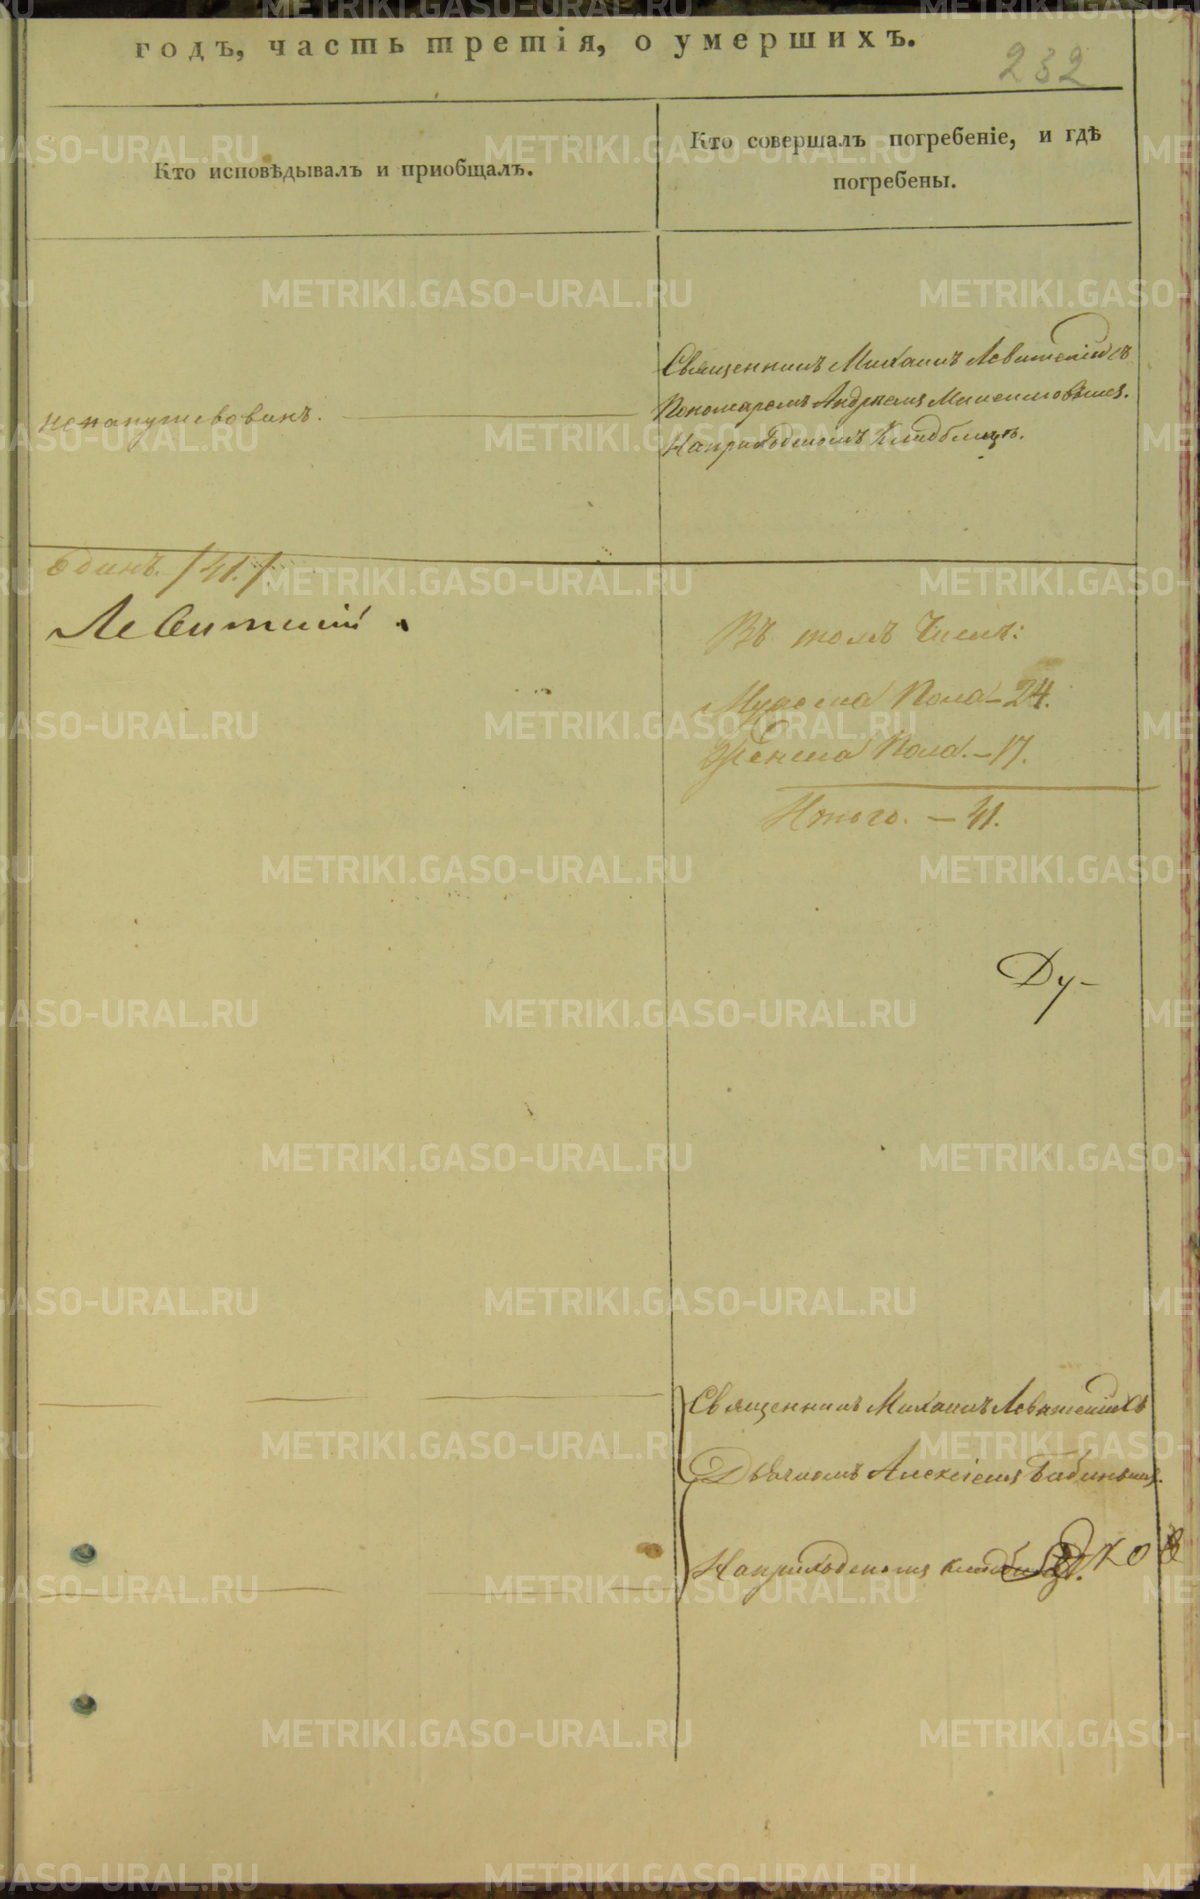 годъ, часть третія, о умершихъ.
232
Кто исповѣдывалъ и приобщалъ.
Кто совершалъ погребеніе, и гдѣ
погребены.
Священникъ Михаилъ Левитскій съ
Пономаремъ Андреемъ
ненапутствованъ.
На приходскомъ кладбищѣ.
Одинъ. /41./
Левитскій
Въ томъ числѣ:
Мужеска Пола - 24.
Женска Пола. - 17.
Итого. - 41.
Ду-
Священникъ Михаилъ Левитскій съ
Дьячкомъ Алексѣемъ Бабинымъ.
На приходскомъ кладбищѣ.
ко
METRIKI.GASO-URAL.RU